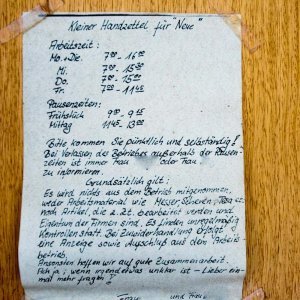 Kleiner Handzettel für "Neue"
Arbeitszeit:
Mo. + Die. 7°° - 16°°
Mi. 7°° - 15³⁰
Do. 7°° - 15°°
Fr. 7°° - 11⁴⁵
Pausenzeiten:
Frühstück 9°° - 9¹⁵
Mittag 11⁴⁵ - 13°°
Bitte kommen Sie pünktlich und selbständig!
Bei Verlassen des Betriebes außerhalb der Pausen-
zeiten ist immer Frau oder Frau
zu informieren.
Grundsätzlich gilt:
Es wird nichts aus dem Betrieb mitgenommen,
weder Arbeitsmaterial wie Messer, Scheren,
noch Artikel, die z. Zt. bearbeitet werden und
Eigentum der Firmen sind. Es finden unregelmäßig
Kontrollen statt. Bei Zuwiderhandlung erfolgt
eine Anzeige sowie Ausschluß aus dem Arbeits
betrieb.
Ansonsten hoffen wir auf gute Zusammenarbeit.
Ach ja: wenn irgendetwas unklar ist - Lieber ein-
mal mehr fragen!
Frau und Frau